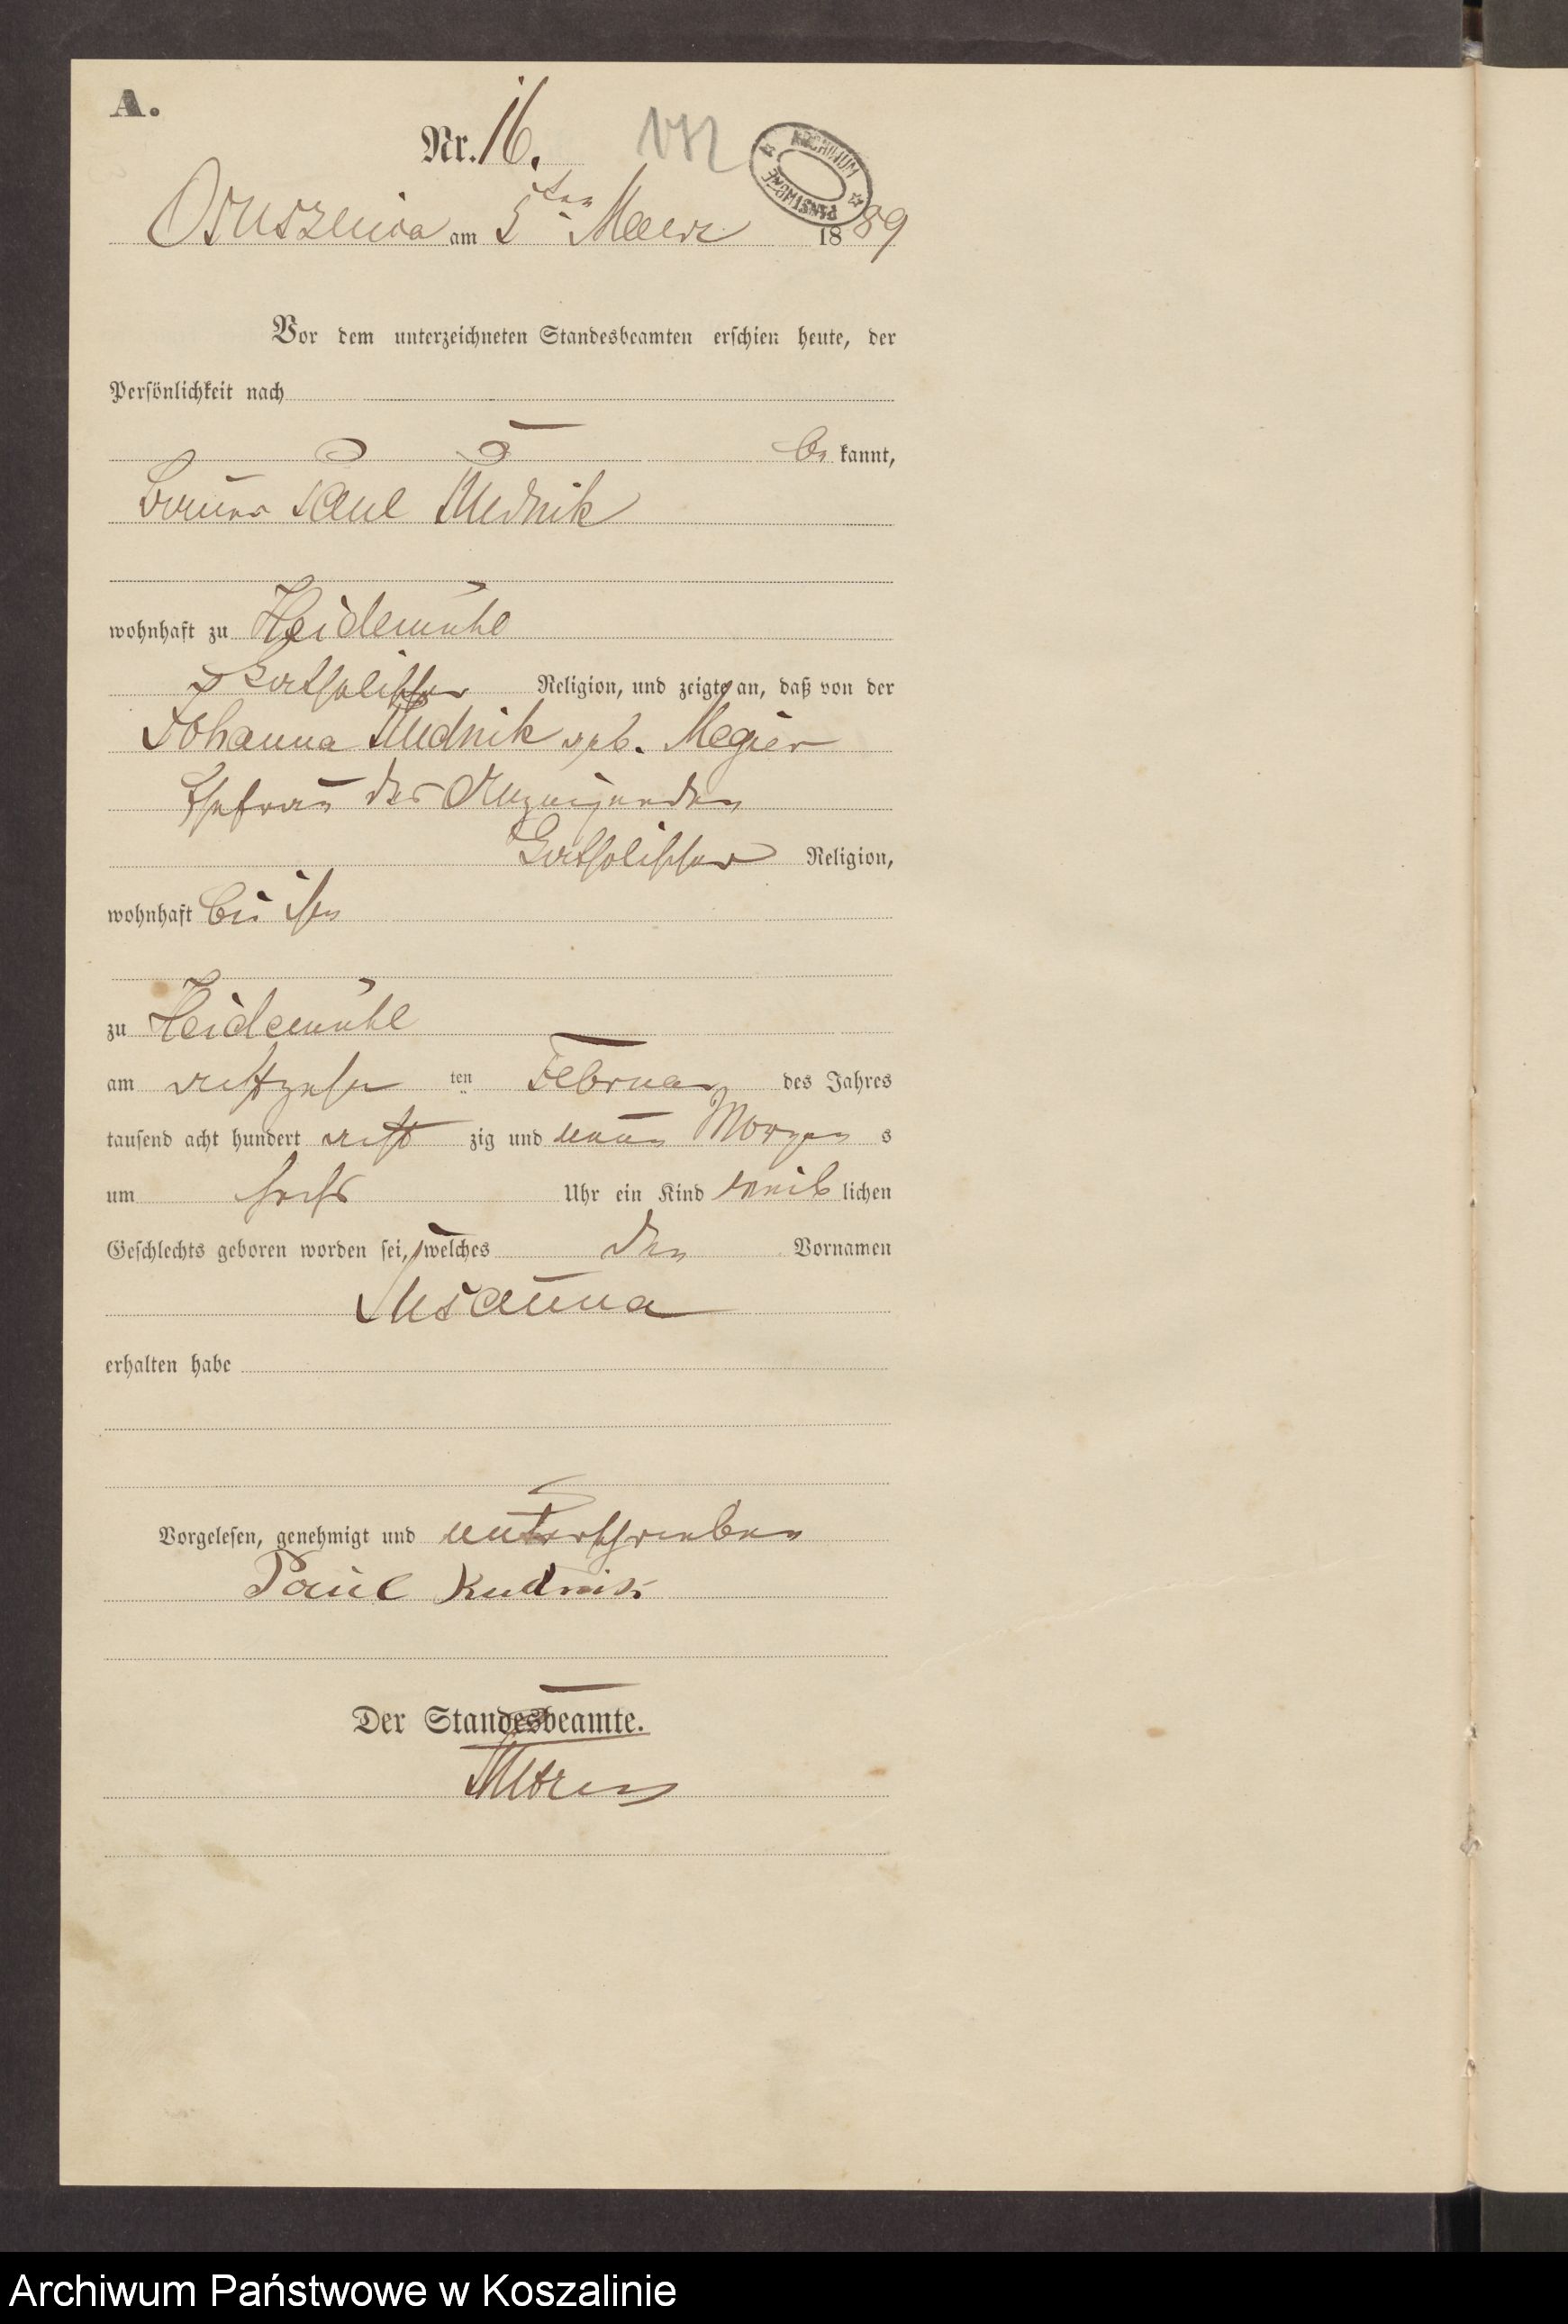 A.
Nr. 16.
172
ARCHIWUM PAŃSTWOWE
Osuszenica am 5ten Maerz 1889
Vor dem unterzeichneten Standesbeamten erschien heute, der
Persönlichkeit nach
be kannt,
Bauer Paul Kudnik
wohnhaft zu Heidemühl
katholischer Religion, und zeigte an, daß von der
Johanna Kudnik geb. Megier
Ehefrau des Anzeigenden
katholischer Religion,
wohnhaft bei ihm
zu Heidemühl
am achtzehn ten Februar des Jahres
tausend acht hundert acht zig und neun Morgen s
um sechs Uhr ein Kind weib lichen
Geschlechts geboren worden sei, welches den Vornamen
Susanna
erhalten habe
Vorgelesen, genehmigt und unterschrieben
Paul Kudnik
Der Standesbeamte.
Archiwum Państwowe w Koszalinie